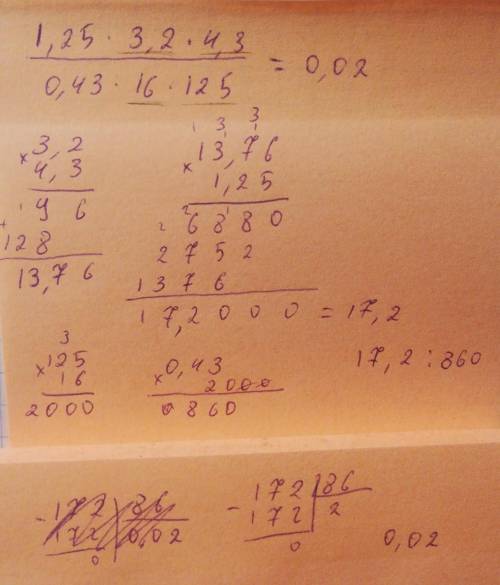 1,25 · 3,2 · 4,3
0,43 · 16 · 125
= 0,02
× 3,2
4,3
1 9 6
+
128
13,76
1 3 3
× 13,76
1,25
2 2 6 8 1 8 0
2 7 5 2
1 3 7 6
1 7,2 0 0 0 = 17,2
3
× 125
16
2000
× 0,43
2000
0860
17,2 : 860
- 172 | 86
172 | 0,02
0
- 172 | 86
172 | 2
0
0,02